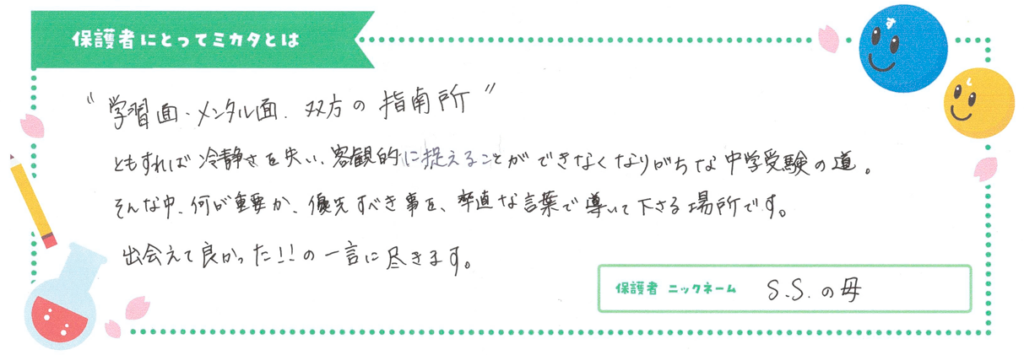 保護者にとってミカタとは
“学習面・メンタル面、双方の指南所”
ともすれば冷静さを失い、客観的に捉えることができなくなりがちな中学受験の道。
そんな中、何が重要か、優先すべき事を、率直な言葉で導いて下さる場所です。
出会えて良かった!!の一言に尽きます。
保護者 ニックネーム S.S.の母